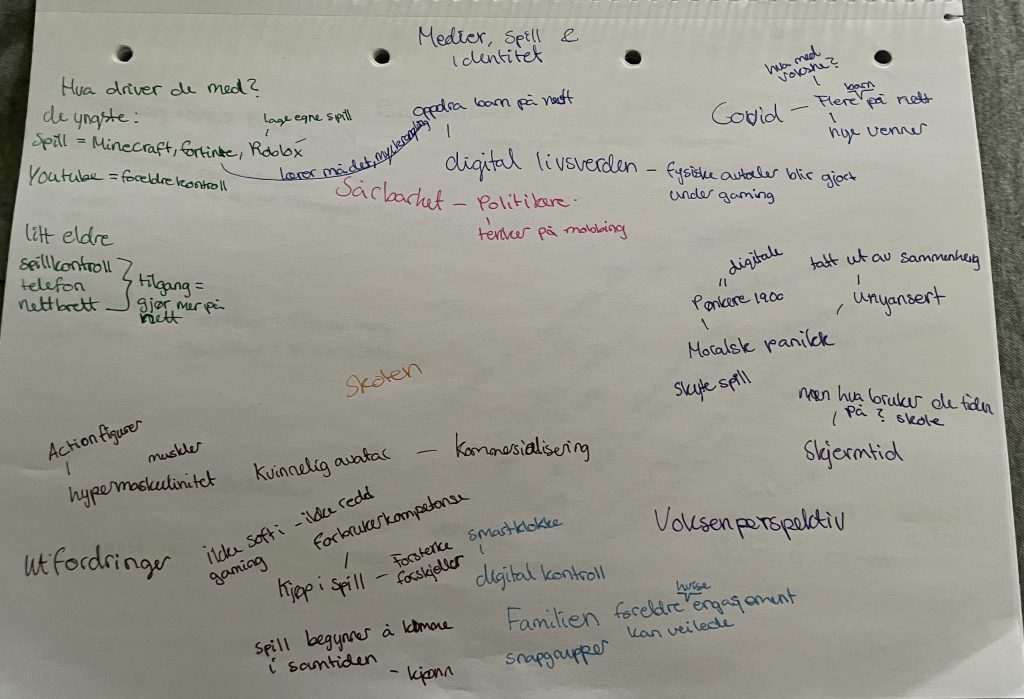 Medier, spill &
identitet
Hva driver de med?
de yngste:
lage egne spill
Spill = Minecraft, fortinte, Roblox
Youtube = foreldrekontroll
lærer må det, mye
oppdra barn på nett
digital livsverden - fysiske avtaler blir gjort
under gaming
hva med
voksne?
barn
Covid - Flere på nett
nye venner
Sårbarhet - Politikere
tenker på mobbing
litt eldre
spillkontroll
telefon
nettbrett
tilgang =
gjør mer på
nett
digitale
Pønkere 1900
Moralsk panikk
skyte spill
tatt ut av sammenheng
Unyansert
men hva bruker de tiden
på? skole
Skjermtid
Skolen
Actionfigurer
muskler
hypermaskulinitet
Kvinnelig avatar - Kommersialisering
Voksenperspektiv
Utfordringer
ikke soft i - ikke redd
gaming
forbrukerkompetanse
Kjøp i spill - Forsterke
forskjeller
spill begynner å komme
i samtiden - kjønn
smartklokke
digital kontroll
Familien foreldre engasjement
kan veilede
snapgrupper